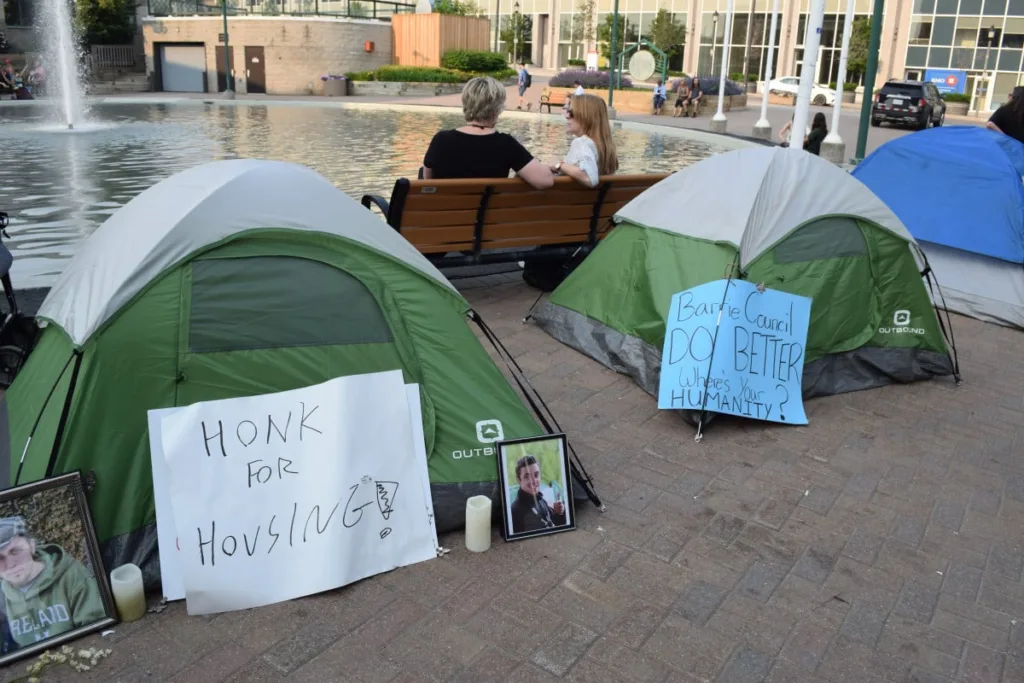 HONK
FOR
HOUSING!
OUTBOUND
Barrie Council
DO BETTER
Where's Your
HUMANITY?
OUTBOUND
BMO